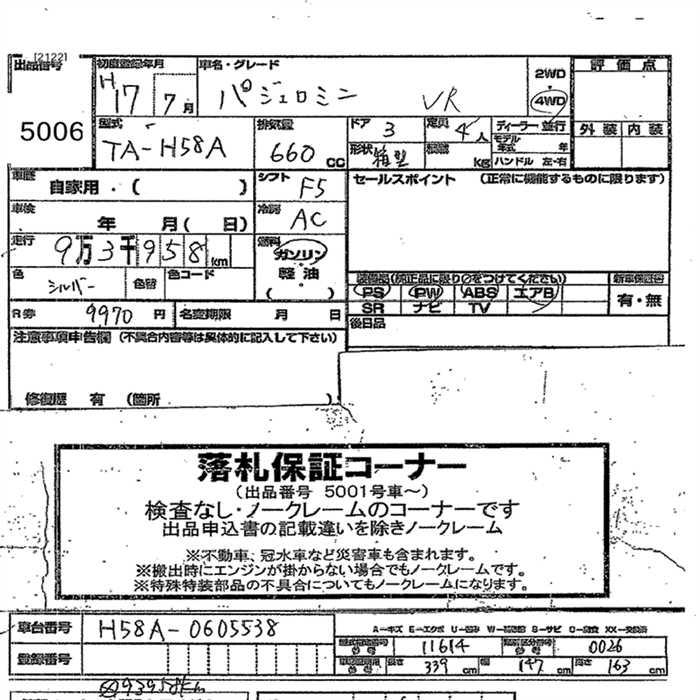 [2122]
出品番号 初度登録年月 車名・グレード 評価点
5006 H17 7月 パジェロミニ VR 2WD 4WD
型式 排気量 ドア 3 定員 4人 ディーラー・並行 外装 内装
TA-H58A 660cc 形状 箱型 kg モデル年式 年
ハンドル 左・右
車歴 自家用・( ) シフト F5 セールスポイント (正常に機能するものに限ります)
車検 年 月(日) 冷房 AC
走行 9万3千958km 燃料 ガソリン・軽油・( )
色 シルバー 色替 色コード
装備品(純正品に限り○をつけてください) 新車保証書
PS PW ABS エアB 有・無
SR ナビ TV
R券 9970円 名変期限 月 日 後日品
注意事項申告欄(不具合内容等は具体的に記入して下さい)
修復歴 有 (箇所 )
落札保証コーナー
(出品番号 5001号車~)
検査なし・ノークレームのコーナーです
出品申込書の記載違いを除きノークレーム
※不動車、冠水車など災害車も含まれます。
※搬出時にエンジンが掛からない場合でもノークレームです。
※特殊特装部品の不具合についてもノークレームになります。
車台番号 H58A-0605538
登録番号
11614 0026
長さ 339cm 幅 147cm 高さ 163cm
93958km